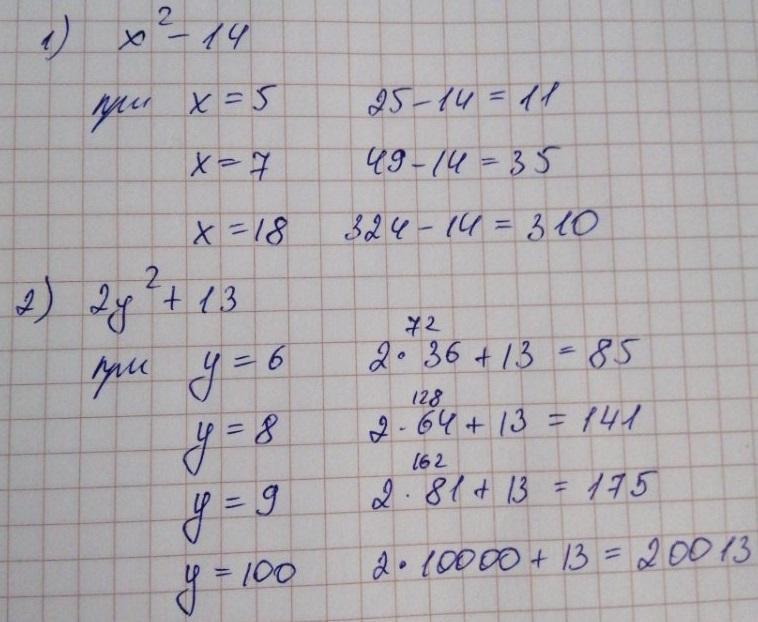 1) x² - 14
при x = 5 25 - 14 = 11
x = 7 49 - 14 = 35
x = 18 324 - 14 = 310
2) 2y² + 13
72
при y = 6 2 · 36 + 13 = 85
128
y = 8 2 · 64 + 13 = 141
162
y = 9 2 · 81 + 13 = 175
y = 100 2 · 10000 + 13 = 20013